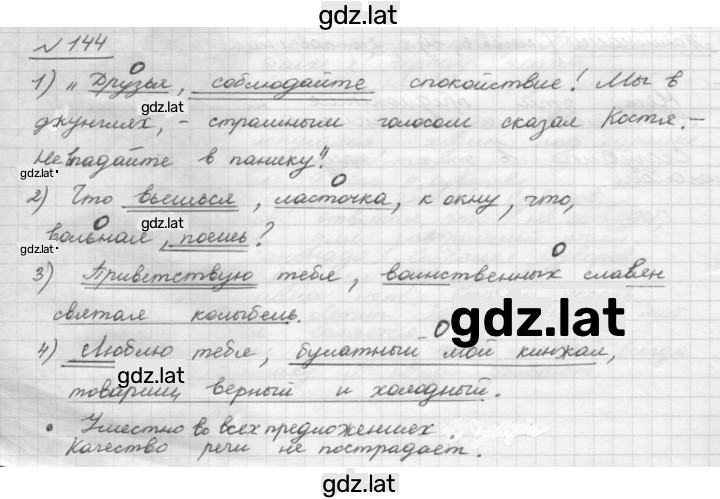 gdz.lat
№ 144
1) „Друзья, соблюдайте спокойствие! Мы в
gdz.lat
джунглях, – страшным голосом сказал Костя. –
Не впадайте в панику!"
gdz.lat
2) Что вьешься, ласточка, к окну, что,
gdz.lat
вольная, поешь?
gdz.lat
3) Приветствую тебя, воинственных славян
святая колыбель.
gdz.lat
4) Люблю тебя, булатный мой кинжал,
gdz.lat
товарищ верный и холодный.
• Уместно во всех предложениях.
Качество речи не пострадает.
gdz.lat